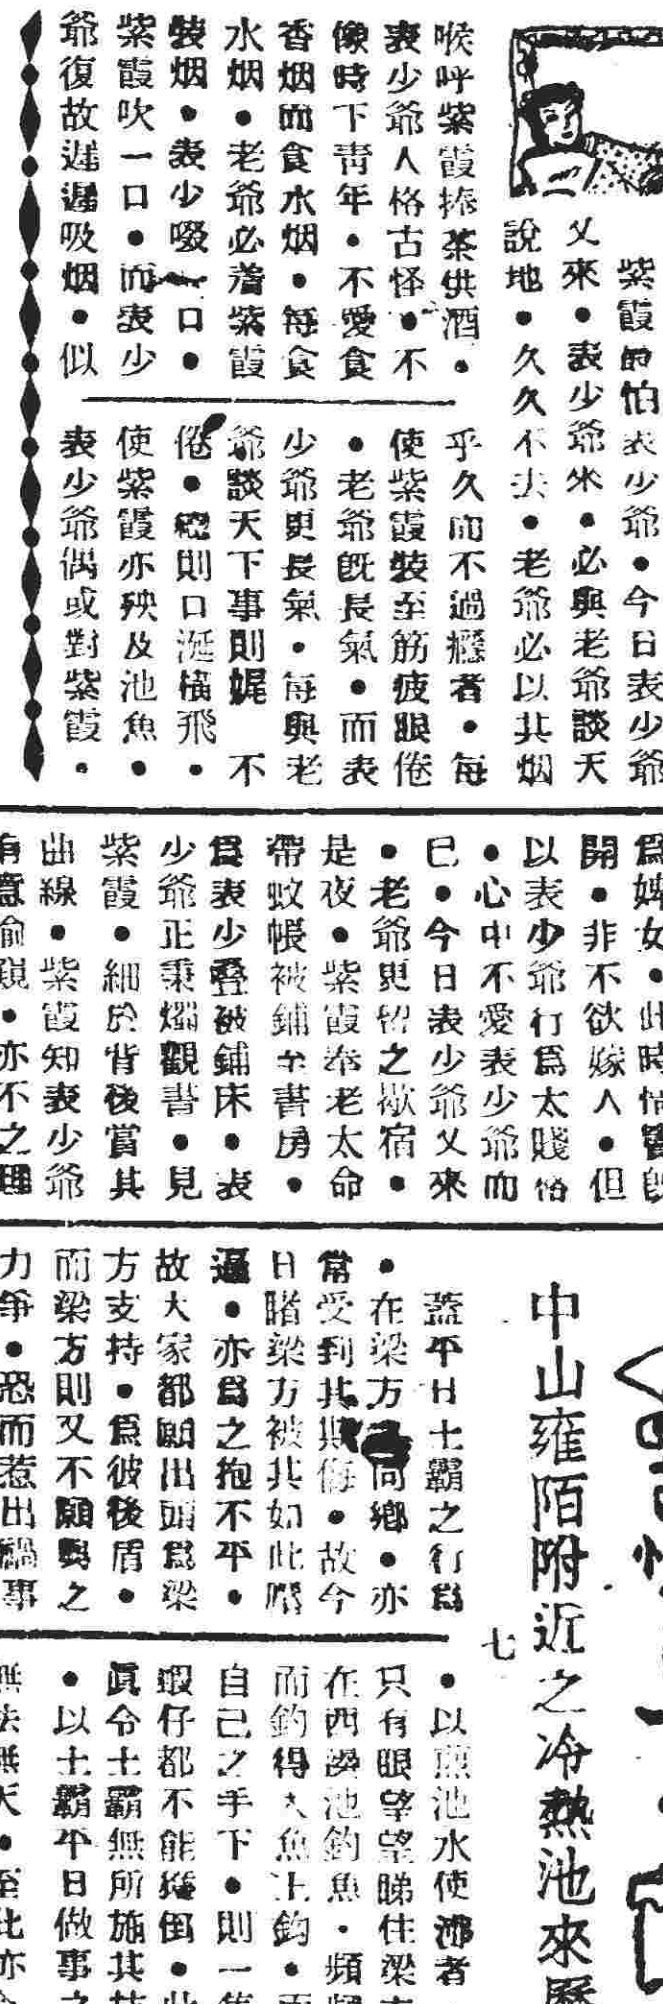 紫霞的怕表少爺•今日表少爺
又來•表少爺來•必與老爺談天
說地•久久不去•老爺必以其烟
喉呼紫霞捧茶供酒•
表少爺人格古怪•不
像時下靑年•不愛食
香烟而食水烟•每食
水烟•老爺必着紫霞
裝烟•表少啜一口•
紫霞吹一口•而表少
爺復故遲遲吸烟•似
乎久而不過癮者•每
使紫霞裝至筋疲眼倦
•老爺旣長氣•而表
少爺更長氣•每與老
爺談天下事則娓　不
倦•縱則口涎橫飛•
使紫霞亦殃及池魚•
表少爺偶或對紫霞•
爲婢女•此時情
開•非不欲嫁人•但
以表少爺行爲太賤格
•心中不愛表少爺而
已•今日表少爺又來
•老爺更留之歇宿•
是夜•紫霞奉老太命
帶蚊帳被鋪至書房•
爲表少疊被鋪床•表
少爺正秉燭觀書•見
紫霞•細於背後當其
曲線•紫霞知表少爺
有意偷窺•亦不之理
中山雍陌附近之冷熱池來歷
七
蓋平日土霸之行爲
•在梁方同鄉•亦
常受到其欺侮•故今
日睹梁方被其如此
逼•亦爲之抱不平•
故大家都願出頭爲梁
方支持•爲彼後盾•
而梁方則又不願與之
力爭•恐而惹出禍事
•以熱池水使者
只有眼望望睇住梁
在西邊池釣魚•頻
而釣得大魚上鈎•而
自己之手下•則一
蝦仔都不能獲倒•此
眞令土霸無所施其技
•以土霸平日做事之
無法無天•至此亦